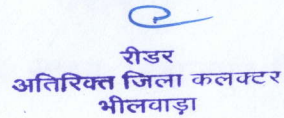 रीडर
अतिरिक्त जिला कलक्टर
भीलवाड़ा